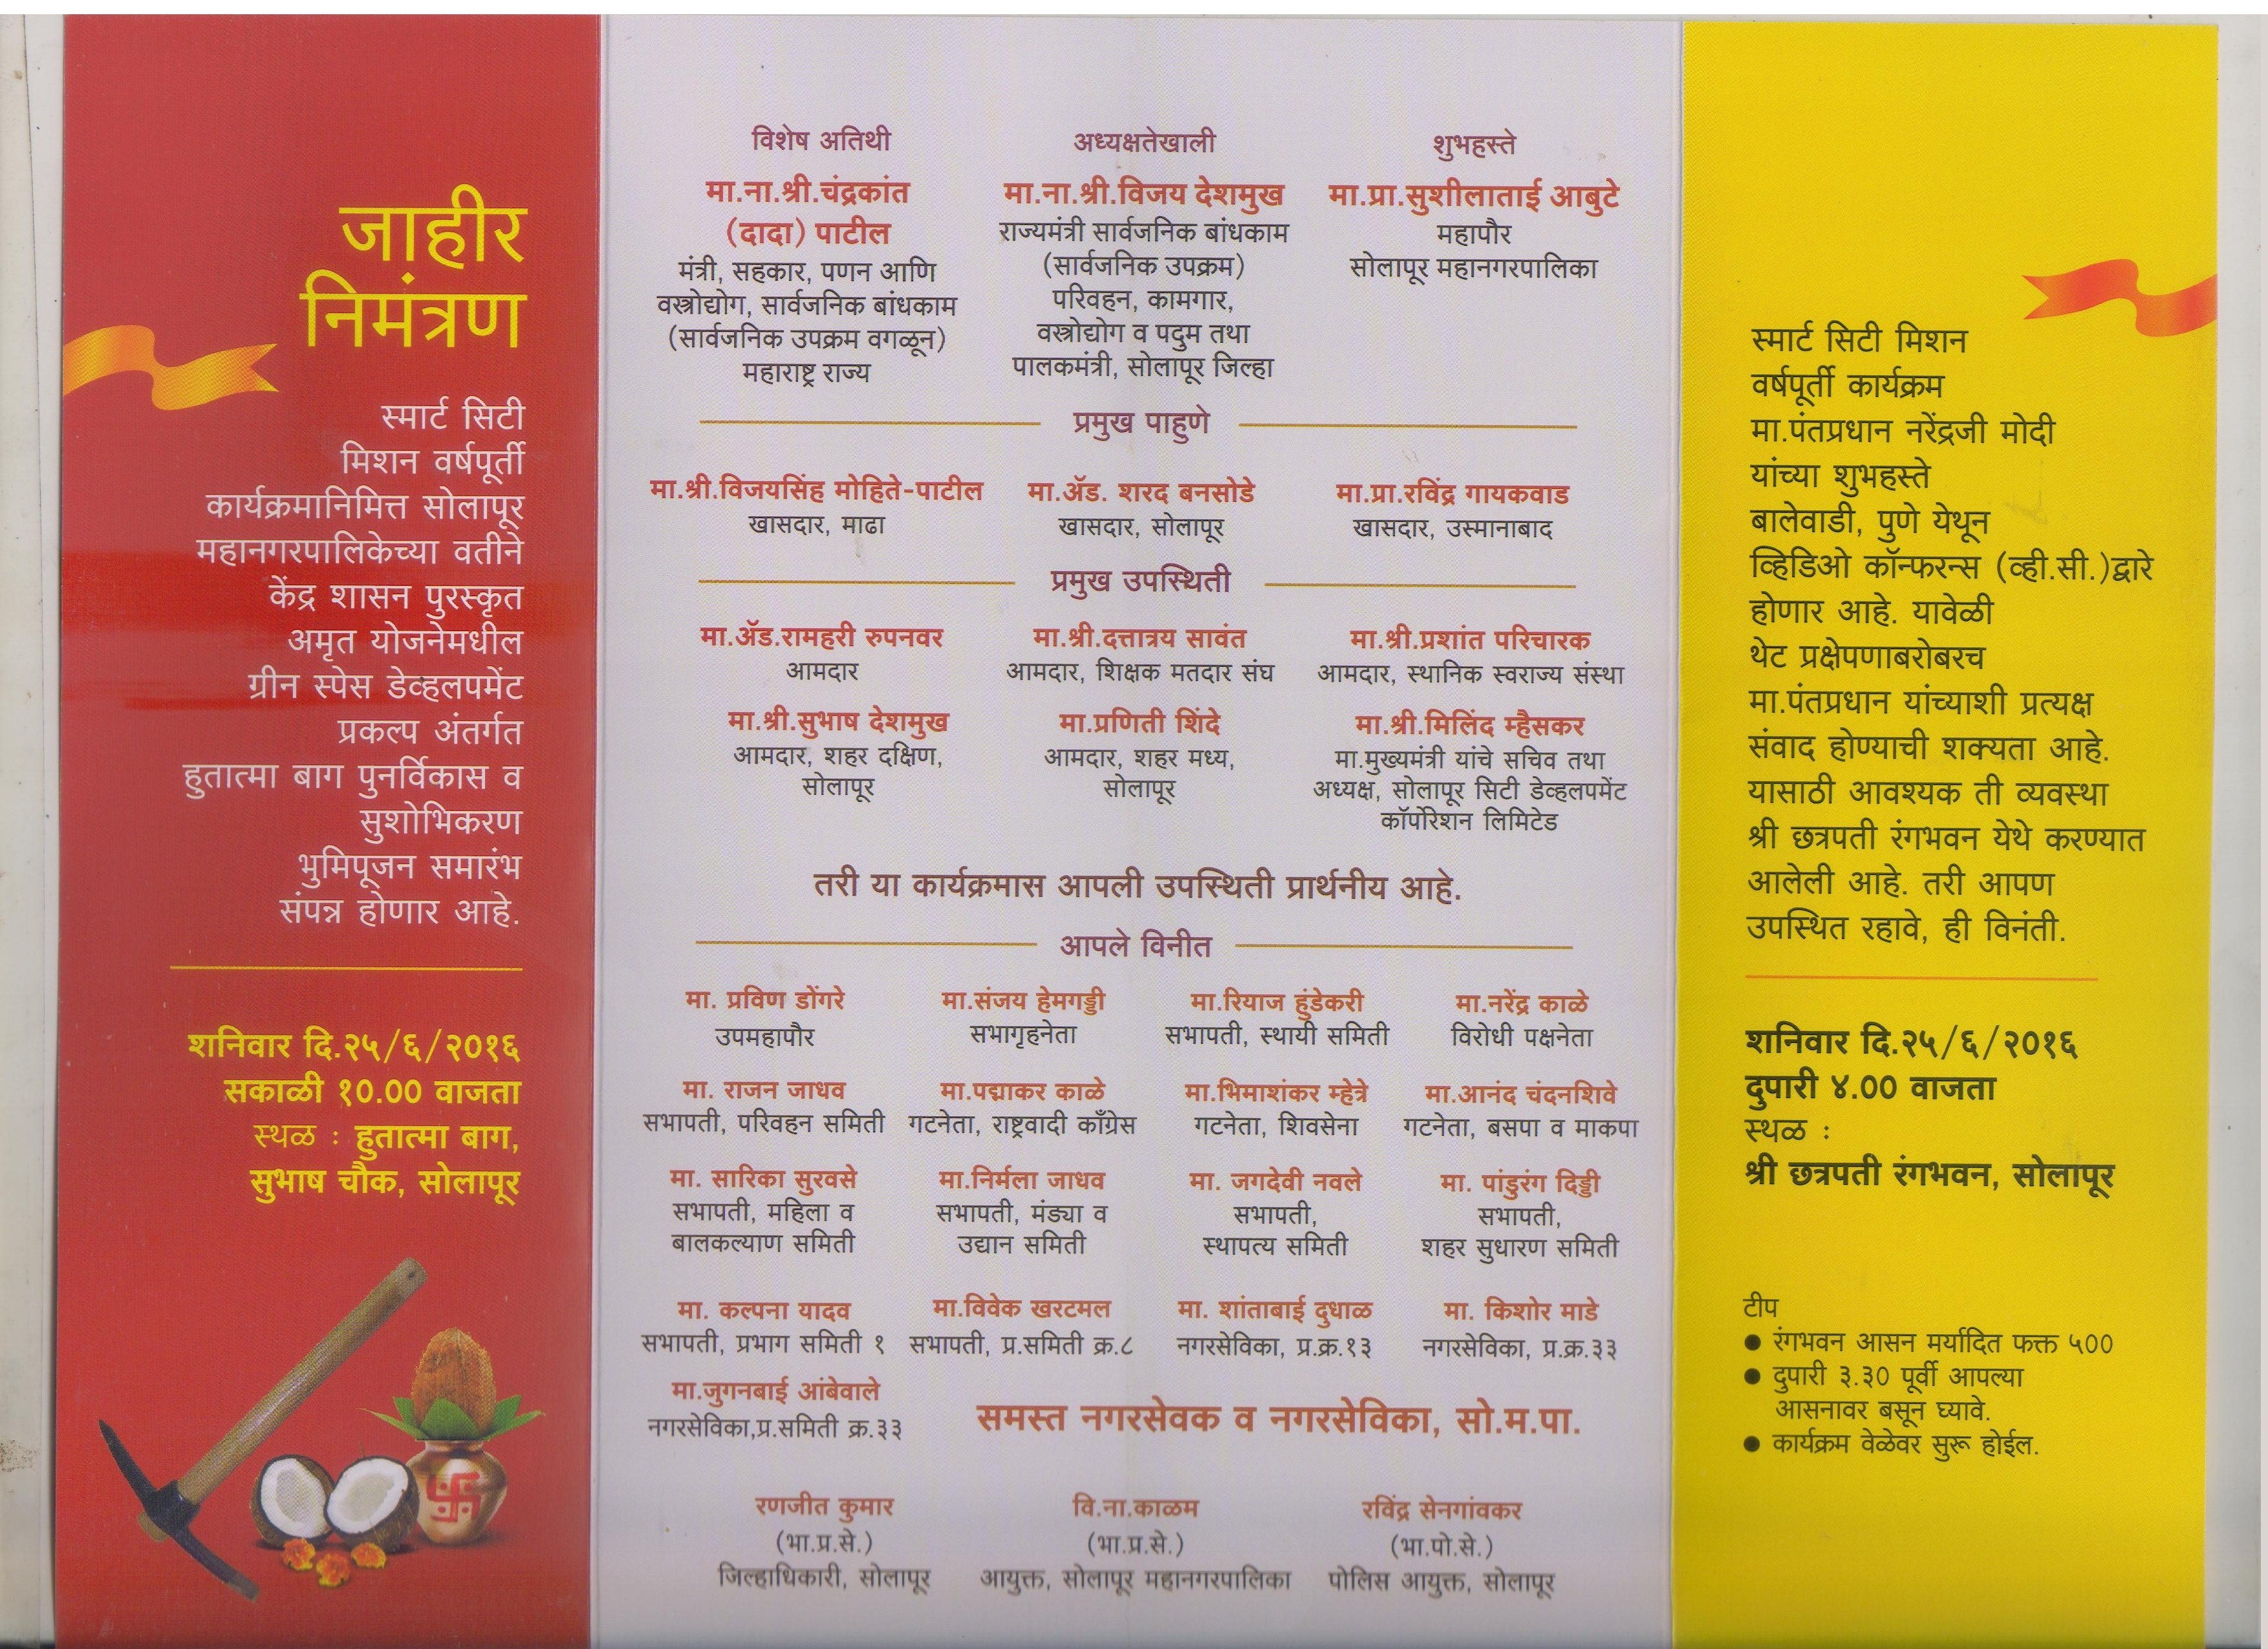 जाहीर
निमंत्रण
स्मार्ट सिटी
मिशन वर्षपूर्ती
कार्यक्रमानिमित्त सोलापूर
महानगरपालिकेच्या वतीने
केंद्र शासन पुरस्कृत
अमृत योजनेमधील
ग्रीन स्पेस डेव्हलपमेंट
प्रकल्प अंतर्गत
हुतात्मा बाग पुनर्विकास व
सुशोभिकरण
भुमिपूजन समारंभ
संपन्न होणार आहे.
शनिवार दि.२५/६/२०१६
सकाळी १०.00 वाजता
स्थळ : हुतात्मा बाग,
सुभाष चौक, सोलापूर
विशेष अतिथी
मा.ना.श्री.चंद्रकांत
(दादा) पाटील
मंत्री, सहकार, पणन आणि
वस्त्रोद्योग, सार्वजनिक बांधकाम
(सार्वजनिक उपक्रम वगळून)
महाराष्ट्र राज्य
अध्यक्षतेखाली
मा.ना.श्री.विजय देशमुख
राज्यमंत्री सार्वजनिक बांधकाम
(सार्वजनिक उपक्रम)
परिवहन, कामगार,
वस्त्रोद्योग व पदुम तथा
पालकमंत्री, सोलापूर जिल्हा
शुभहस्ते
मा.प्रा.सुशीलाताई आबुटे
महापौर
सोलापूर महानगरपालिका
प्रमुख पाहुणे
मा.श्री.विजयसिंह मोहिते-पाटील
खासदार, माढा
मा.ॲड. शरद बनसोडे
खासदार, सोलापूर
मा.प्रा.रविंद्र गायकवाड
खासदार, उस्मानाबाद
प्रमुख उपस्थिती
मा.ॲड.रामहरी रुपनवर
आमदार
मा.श्री.दत्तात्रय सावंत
आमदार, शिक्षक मतदार संघ
मा.श्री.प्रशांत परिचारक
आमदार, स्थानिक स्वराज्य संस्था
मा.श्री.सुभाष देशमुख
आमदार, शहर दक्षिण,
सोलापूर
मा.प्रणिती शिंदे
आमदार, शहर मध्य,
सोलापूर
मा.श्री.मिलिंद म्हैसकर
मा.मुख्यमंत्री यांचे सचिव तथा
अध्यक्ष, सोलापूर सिटी डेव्हलपमेंट
कॉर्पोरेशन लिमिटेड
तरी या कार्यक्रमास आपली उपस्थिती प्रार्थनीय आहे.
आपले विनीत
मा. प्रविण डोंगरे
उपमहापौर
मा.संजय हेमगड्डी
सभागृहनेता
मा.रियाज हुंडेकरी
सभापती, स्थायी समिती
मा.नरेंद्र काळे
विरोधी पक्षनेता
मा. राजन जाधव
सभापती, परिवहन समिती
मा.पद्माकर काळे
गटनेता, राष्ट्रवादी काँग्रेस
मा.भिमाशंकर म्हेत्रे
गटनेता, शिवसेना
मा.आनंद चंदनशिवे
गटनेता, बसपा व माकपा
मा. सारिका सुरवसे
सभापती, महिला व
बालकल्याण समिती
मा.निर्मला जाधव
सभापती, मंड्या व
उद्यान समिती
मा. जगदेवी नवले
सभापती,
स्थापत्य समिती
मा. पांडुरंग दिड्डी
सभापती,
शहर सुधारण समिती
मा. कल्पना यादव
सभापती, प्रभाग समिती १
मा.विवेक खरटमल
सभापती, प्र.समिती क्र.८
मा. शांताबाई दुधाळ
नगरसेविका, प्र.क्र.१३
मा. किशोर माडे
नगरसेविका, प्र.क्र.३३
मा.जुगनबाई आंबेवाले
नगरसेविका,प्र.समिती क्र.३३
समस्त नगरसेवक व नगरसेविका, सो.म.पा.
रणजीत कुमार
(भा.प्र.से.)
जिल्हाधिकारी, सोलापूर
वि.ना.काळम
(भा.प्र.से.)
आयुक्त, सोलापूर महानगरपालिका
रविंद्र सेनगांवकर
(भा.पो.से.)
पोलिस आयुक्त, सोलापूर
स्मार्ट सिटी मिशन
वर्षपूर्ती कार्यक्रम
मा.पंतप्रधान नरेंद्रजी मोदी
यांच्या शुभहस्ते
बालेवाडी, पुणे येथून
व्हिडिओ कॉन्फरन्स (व्ही.सी.)द्वारे
होणार आहे. यावेळी
थेट प्रक्षेपणाबरोबरच
मा.पंतप्रधान यांच्याशी प्रत्यक्ष
संवाद होण्याची शक्यता आहे.
यासाठी आवश्यक ती व्यवस्था
श्री छत्रपती रंगभवन येथे करण्यात
आलेली आहे. तरी आपण
उपस्थित रहावे, ही विनंती.
शनिवार दि.२५/६/२०१६
दुपारी ४.00 वाजता
स्थळ :
श्री छत्रपती रंगभवन, सोलापूर
टीप
● रंगभवन आसन मर्यादित फक्त ५००
● दुपारी ३.३० पूर्वी आपल्या
आसनावर बसून घ्यावे.
● कार्यक्रम वेळेवर सुरू होईल.